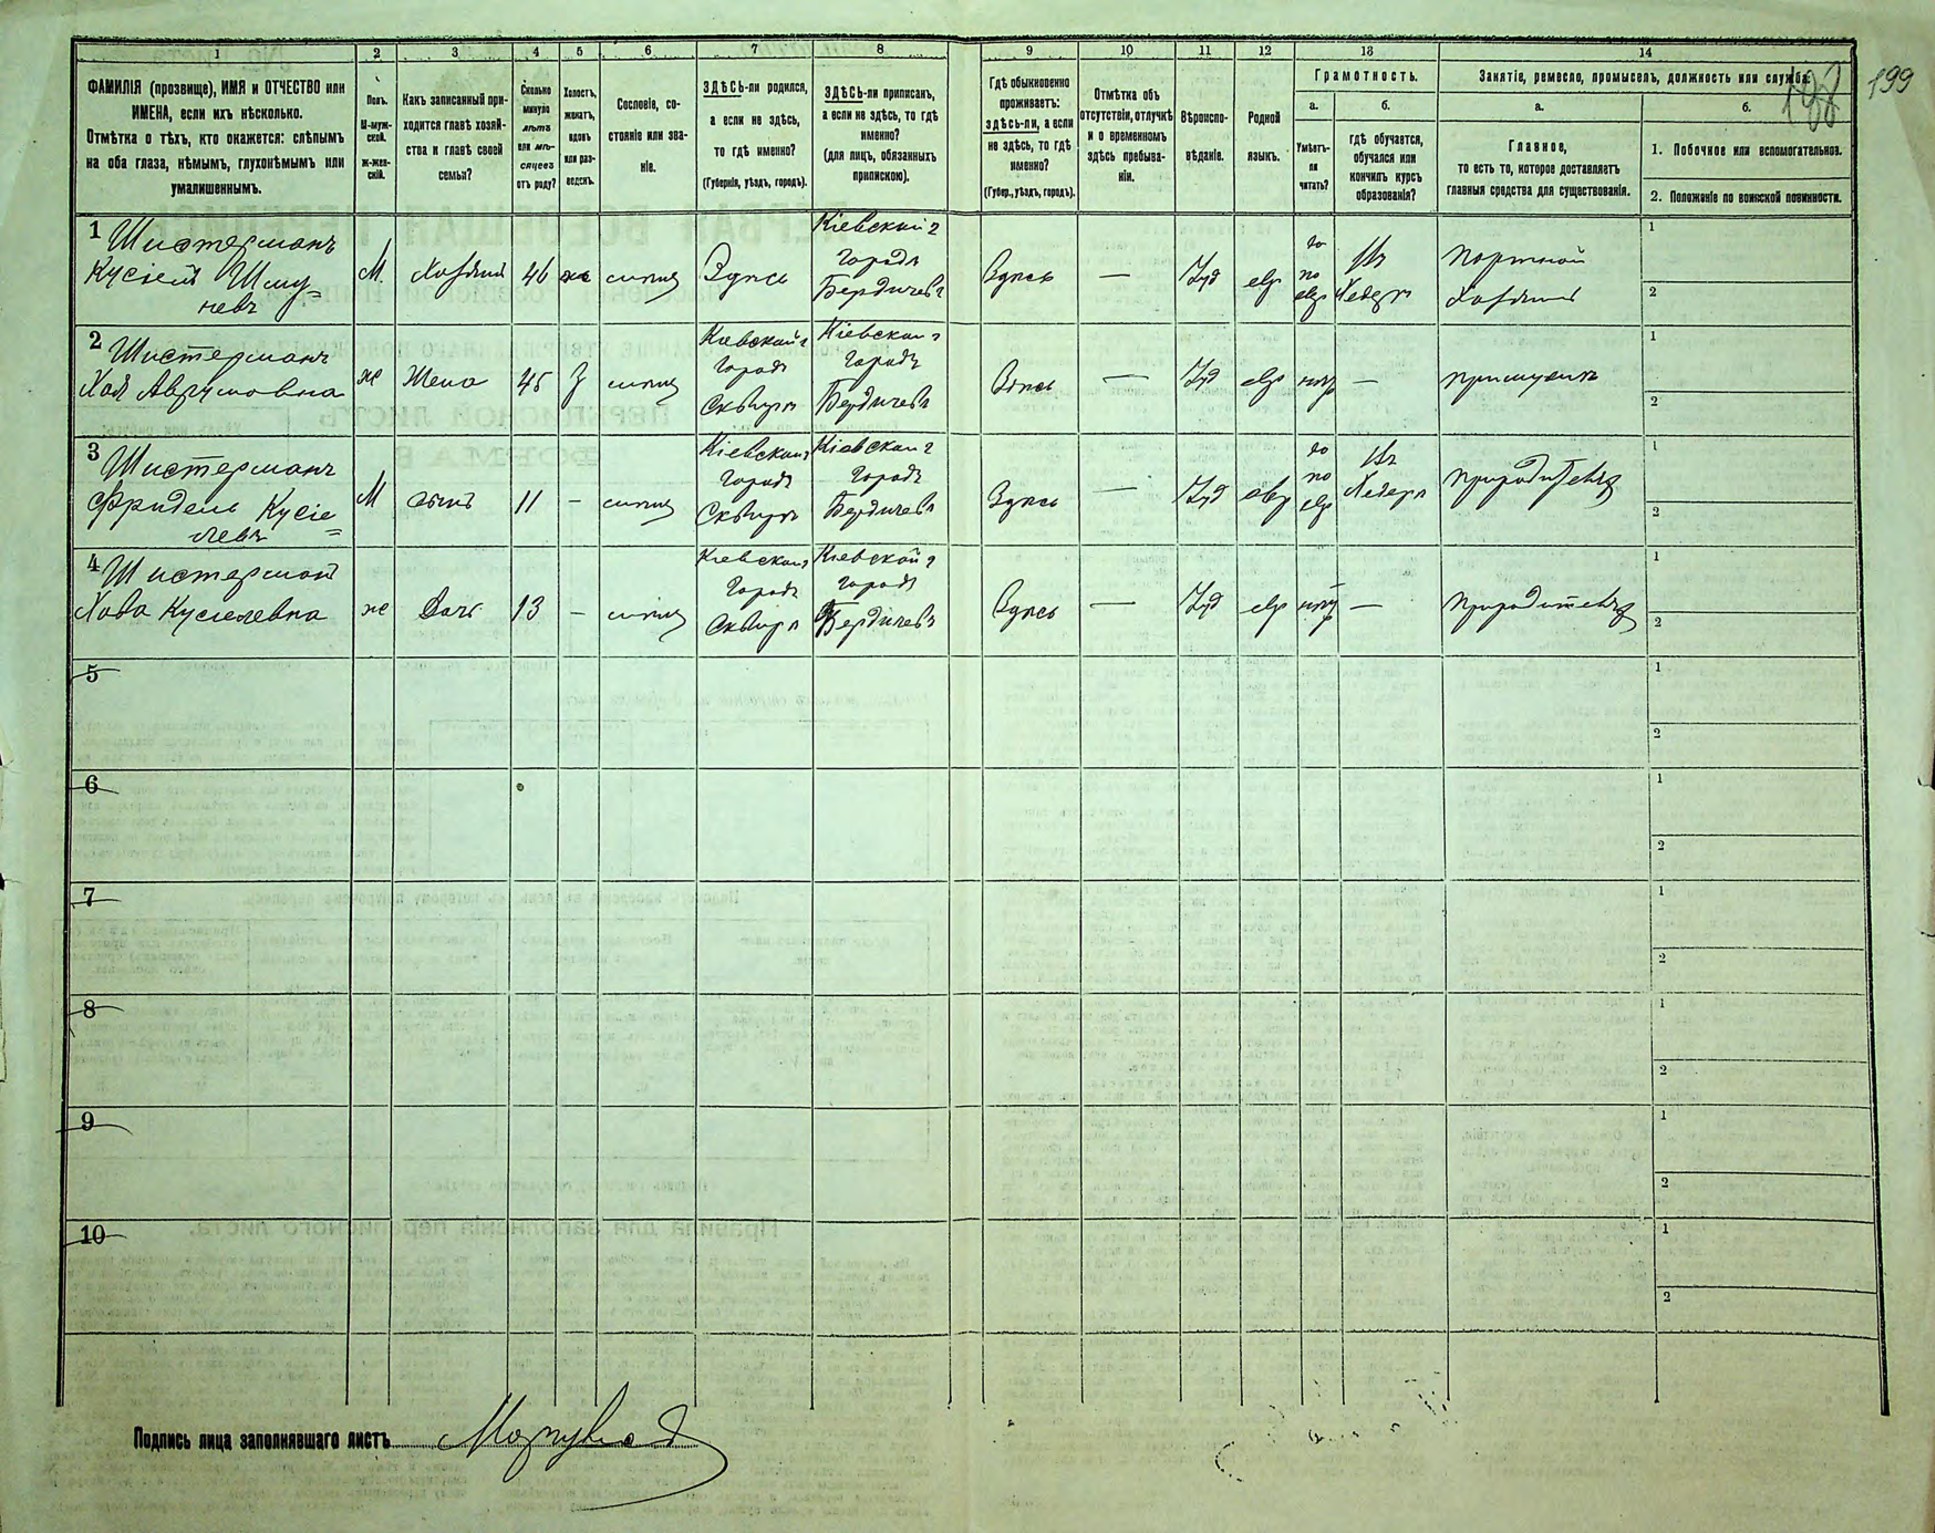 1 2 3 4 5 6 7 8 9 10 11 12 13 14
199
ФАМИЛІЯ (прозвище), ИМЯ и ОТЧЕСТВО или
ИМЕНА, если ихъ нѣсколько.
Отмѣтка о тѣхъ, кто окажется: слѣпымъ
на оба глаза, нѣмымъ, глухонѣмымъ или
умалишеннымъ.
Полъ.
М-муж-
ской.
Ж-жен-
скій.
Какъ записанный при-
ходится главѣ хозяй-
ства и главѣ своей
семьи?
Сколько
минуло
лѣтъ
или мѣ-
сяцевъ
отъ роду?
Холостъ,
женатъ,
вдовъ
или раз-
веденъ.
Сословіе, со-
стояніе или зва-
ніе.
ЗДѢСЬ-ли родился,
а если не здѣсь,
то гдѣ именно?
(Губернія, уѣздъ, городъ).
ЗДѢСЬ-ли приписанъ,
а если не здѣсь, то гдѣ
именно?
(для лицъ, обязанныхъ
припискою).
Гдѣ обыкновенно
проживаетъ:
здѣсь-ли, а если
не здѣсь, то гдѣ
именно?
(Губер., уѣздъ, городъ).
Отмѣтка объ
отсутствіи, отлучкѣ
и о временномъ
здѣсь пребыва-
ніи.
Вѣроиспо-
вѣданіе.
Родной
языкъ.
Грамотность.
а.
Умѣетъ-
ли
читать?
б.
гдѣ обучается,
обучался или
кончилъ курсъ
образованія?
Занятіе, ремесло, промыселъ, должность или служба.
а.
Главное,
то есть то, которое доставляетъ
главныя средства для существованія.
б.
1. Побочное или вспомогательное.
2. Положеніе по воинской повинности.
1 Шистерманъ
Кусіель Шму=
левъ
М. Хозяинъ 46 Здѣсь
Кіевской г
Городъ
Бердичевъ
Здѣсь — Іуд евр
да
по
евр
Въ
Хедерѣ
Портной
Хозяинъ
1
2
2 Шистерманъ
Хая Аврумовна
ж Жена 45 з
Кіевской г
Городъ
Сквира
Кіевской г
Городъ
Бердичевъ
Здѣсь — Іуд евр нѣтъ — при мужѣ
1
2
3 Шистерманъ
Фридель Кусіе=
левъ
М сынъ 11 –
Кіевской г
Городъ
Сквира
Кіевской г
Городъ
Бердичевъ
Здѣсь — Іуд евр
да
по
евр
Въ
Хедерѣ
при родителяхъ
1
2
4 Шистерман
Хова Кусіелевна
ж Дочь 13 –
Кіевской г
Городъ
Сквира
Кіевской г
Городъ
Бердичевъ
Здѣсь — Іуд евр нѣтъ — при родителяхъ
1
2
5
1
2
6
1
2
7
1
2
8
1
2
9
1
2
10
1
2
Подпись лица заполнявшаго листъ